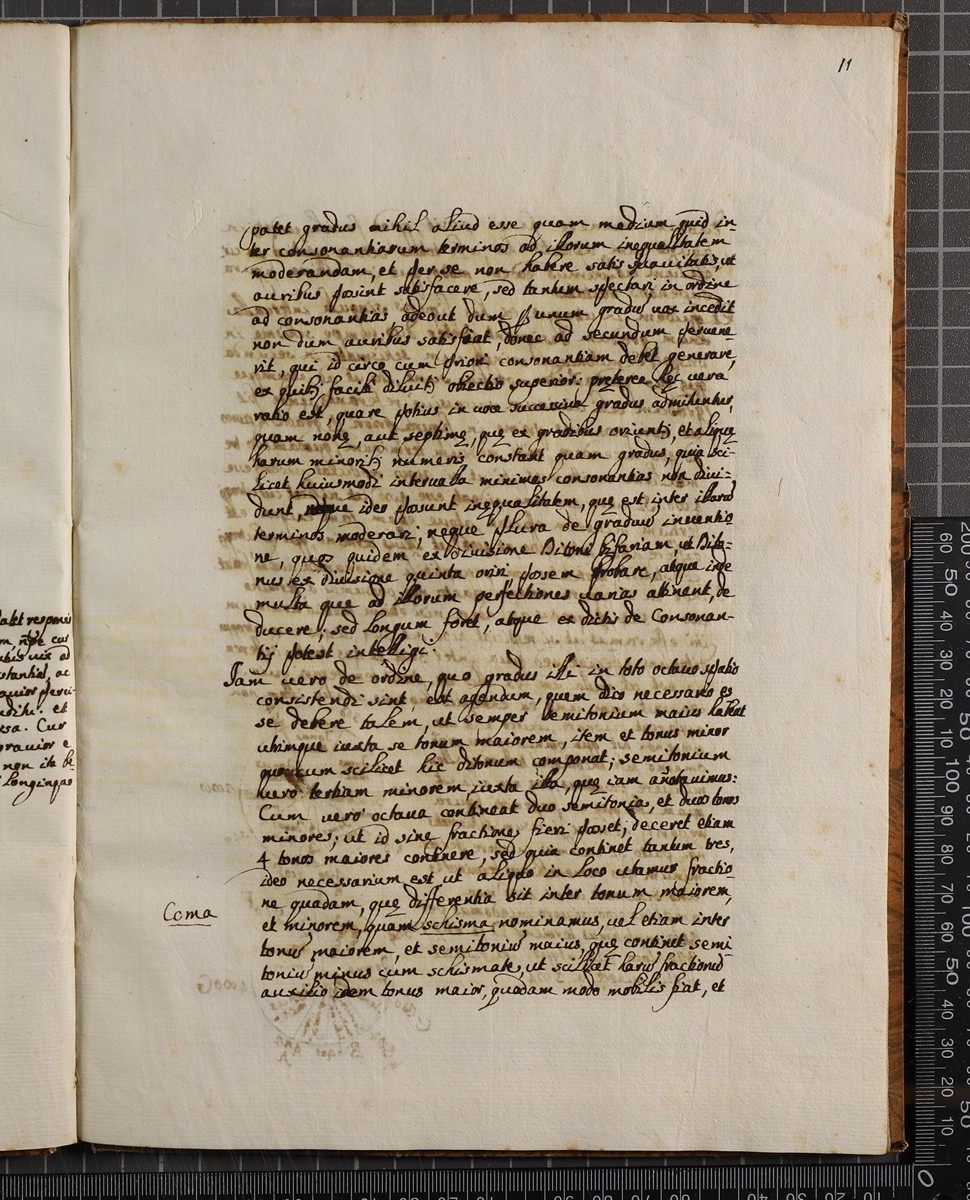 11
patet gradus nihil aliud esse quam medium quid in-
ter consonantiarum terminos ad illorum inequalitatem
moderandam, et per se non habere satis suavitatis, ut
auribus possint satisfacere, sed tantum spectari in ordine
ad consonantias adeout dum p unum gradū vox incedit
non dum auribus satisfiat, donec ad secundum pervene
rit, qui id circo cum priori consonantiam debet generare,
ex quibȝ facile diluitȝ obiectio superior: preterea hęc vera
ratio est, quare potius in voce successivā gradus admitentur,
quam nonę, aut septimę, quę ex gradibus oriuntȝ, et aliquę
harum minoribȝ numeris constant quam gradus, quia sci-
licet huiusmodi intervalla minimas consonantias non divi-
dunt, neque ideo possunt inequalitatem, que est inter illarū
terminos moderari; neque plura de graduū inventio
ne, quos quidem ex divisione Ditoni bifariam, ut Dito-
nus ex divisione quinta oriri possem probare, atque inde
multa que ad illorum perfectiones varias attinent, de
ducere; sed longum foret, atque ex dictis de Consonan-
tijs potest intelligi.
Iam vero de ordine, quo gradus illi in toto octavę spatio
consistendi sint, est agendum, quem dico necessario es
se debere talem, ut semper semitonium maius habeat
utrimque iuxta se tonum maiorem, item et tonus minor
quocum scilicet hic ditonum componat; semitonium
vero tertiam minorem, iuxta illa, quę iam anotavimus:
Cum vero octava contineat duo semitonia, et duos tonos
minores; ut id sine fractione fieri posset; deceret etiam
4 tonos maiores continere, sed quia continet tantum tres,
ideo necessarium est ut aliquo in loco utamur fractio
ne quadam, quę differentia sit inter tonum maiorem,
et minorem, quam schisma nominamus, vel etiam inter
tonū maiorem, et semitoniū maius, quę continet semi
toniū minus cum schismate, ut scilicet harū fractionū
auxilio idem tonus maior, quodam modo mobilis fiat, et
Coma